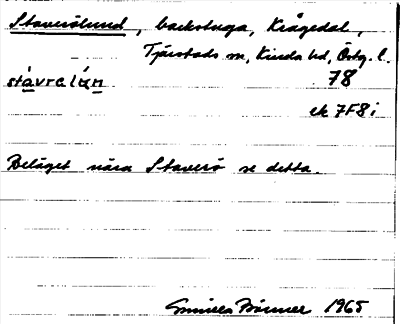 Staverölund, backstuga, Krågedal,
Tjärstads sn, Kinda hd, Östg. l.
stávrelán 78
ek 7F8i
Beläget nära Staverö se detta.
Gunilla 1965